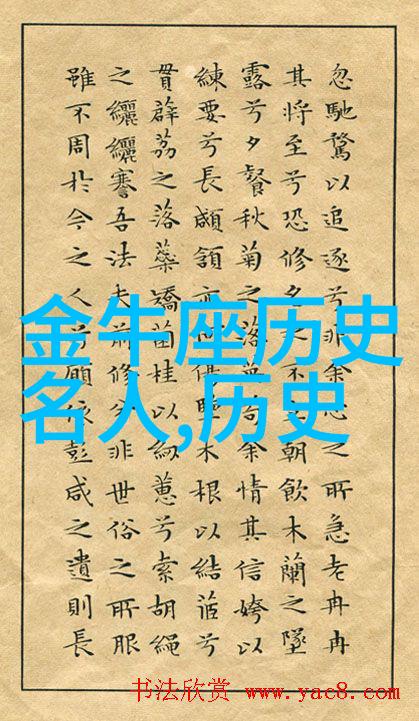 忽馳騖以追逐兮非余心之所急老冉冉
其將至兮恐修名之不立朝飲木蘭之墜
露兮夕餐秋菊之落英苟余情其信姱以
練要兮長顑頷亦何木根以結茝兮
貫薜荔之落蕊矯菌桂以紉蕙兮索胡繩
之纚纚謇吾法夫前修兮非世俗之所服
雖不周於今之人兮願依彭咸之遺則長
金牛座历史
名人,历史
书法欣赏 www.yac8.com